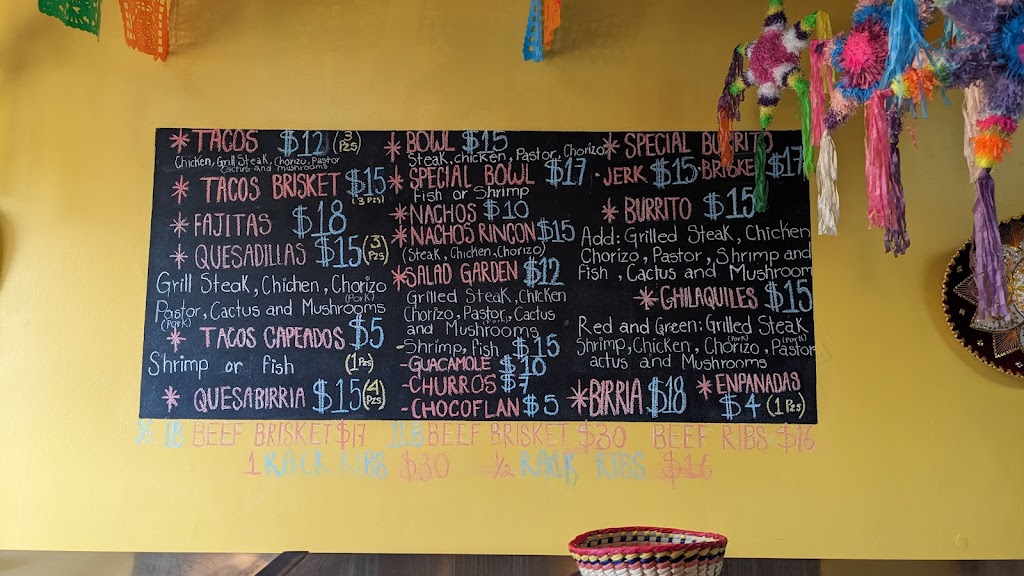 * TACOS $12 (3 Pzs)
Chicken, Grill Steak, Chorizo, Pastor
Cactus and mushrooms
* TACOS BRISKET $15
(3 Pzs)
* FAJITAS $18
* QUESADILLAS $15 (3 Pzs)
Grill Steak, Chichen, Chorizo
(Pork)
Pastor, Cactus and Mushrooms
(Pork)
* TACOS CAPEADOS $5
Shrimp or fish (1Pzs)
* QUESABIRRIA $15 (4 Pzs)
* BOWL $15
Steak, chicken, Pastor, Chorizo
* SPECIAL BOWL $17
Fish or Shrimp
* NACHOS $10
* NACHOS RINCON $15
(Steak, Chicken, Chorizo)
* SALAD GARDEN $12
Grilled Steak, Chicken
Chorizo, Pastor, Cactus
and Mushrooms
- Shrimp, fish $15
- GUACAMOLE $10
- CHURROS $7
- CHOCOFLAN $5
* SPECIAL BURRITO
- JERK $15 - BRISKE $17
* BURRITO $15
Add: Grilled Steak, Chichen
Chorizo, Pastor, Shrimp and
Fish, Cactus and Mushroom
* GHILAQUILES $15
Red and Green: Grilled Steak
(Pork) (Pork)
Shrimp, Chicken, Chorizo, Pastor
actus and Mushrooms
* BIRRIA $18
* ENPANADAS
$4 (1 Pzs)
½ LB BEEF BRISKET $17 1LB BEEF BRISKET $30 BEEF RIBS $16
1 RACK RIBS $30 ½ RACK RIBS $16